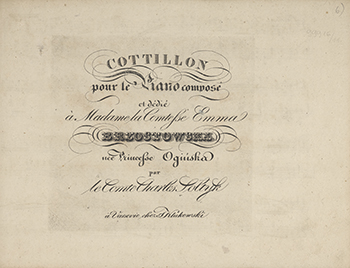 COTTILLON
pour le Piano composé
et dédié
à Madame la Comtesse Emma
BRZOSTOWSKA
née Princesse Ogińska
par
le Comte Charles
à Varsovie, chez J. Klukowski